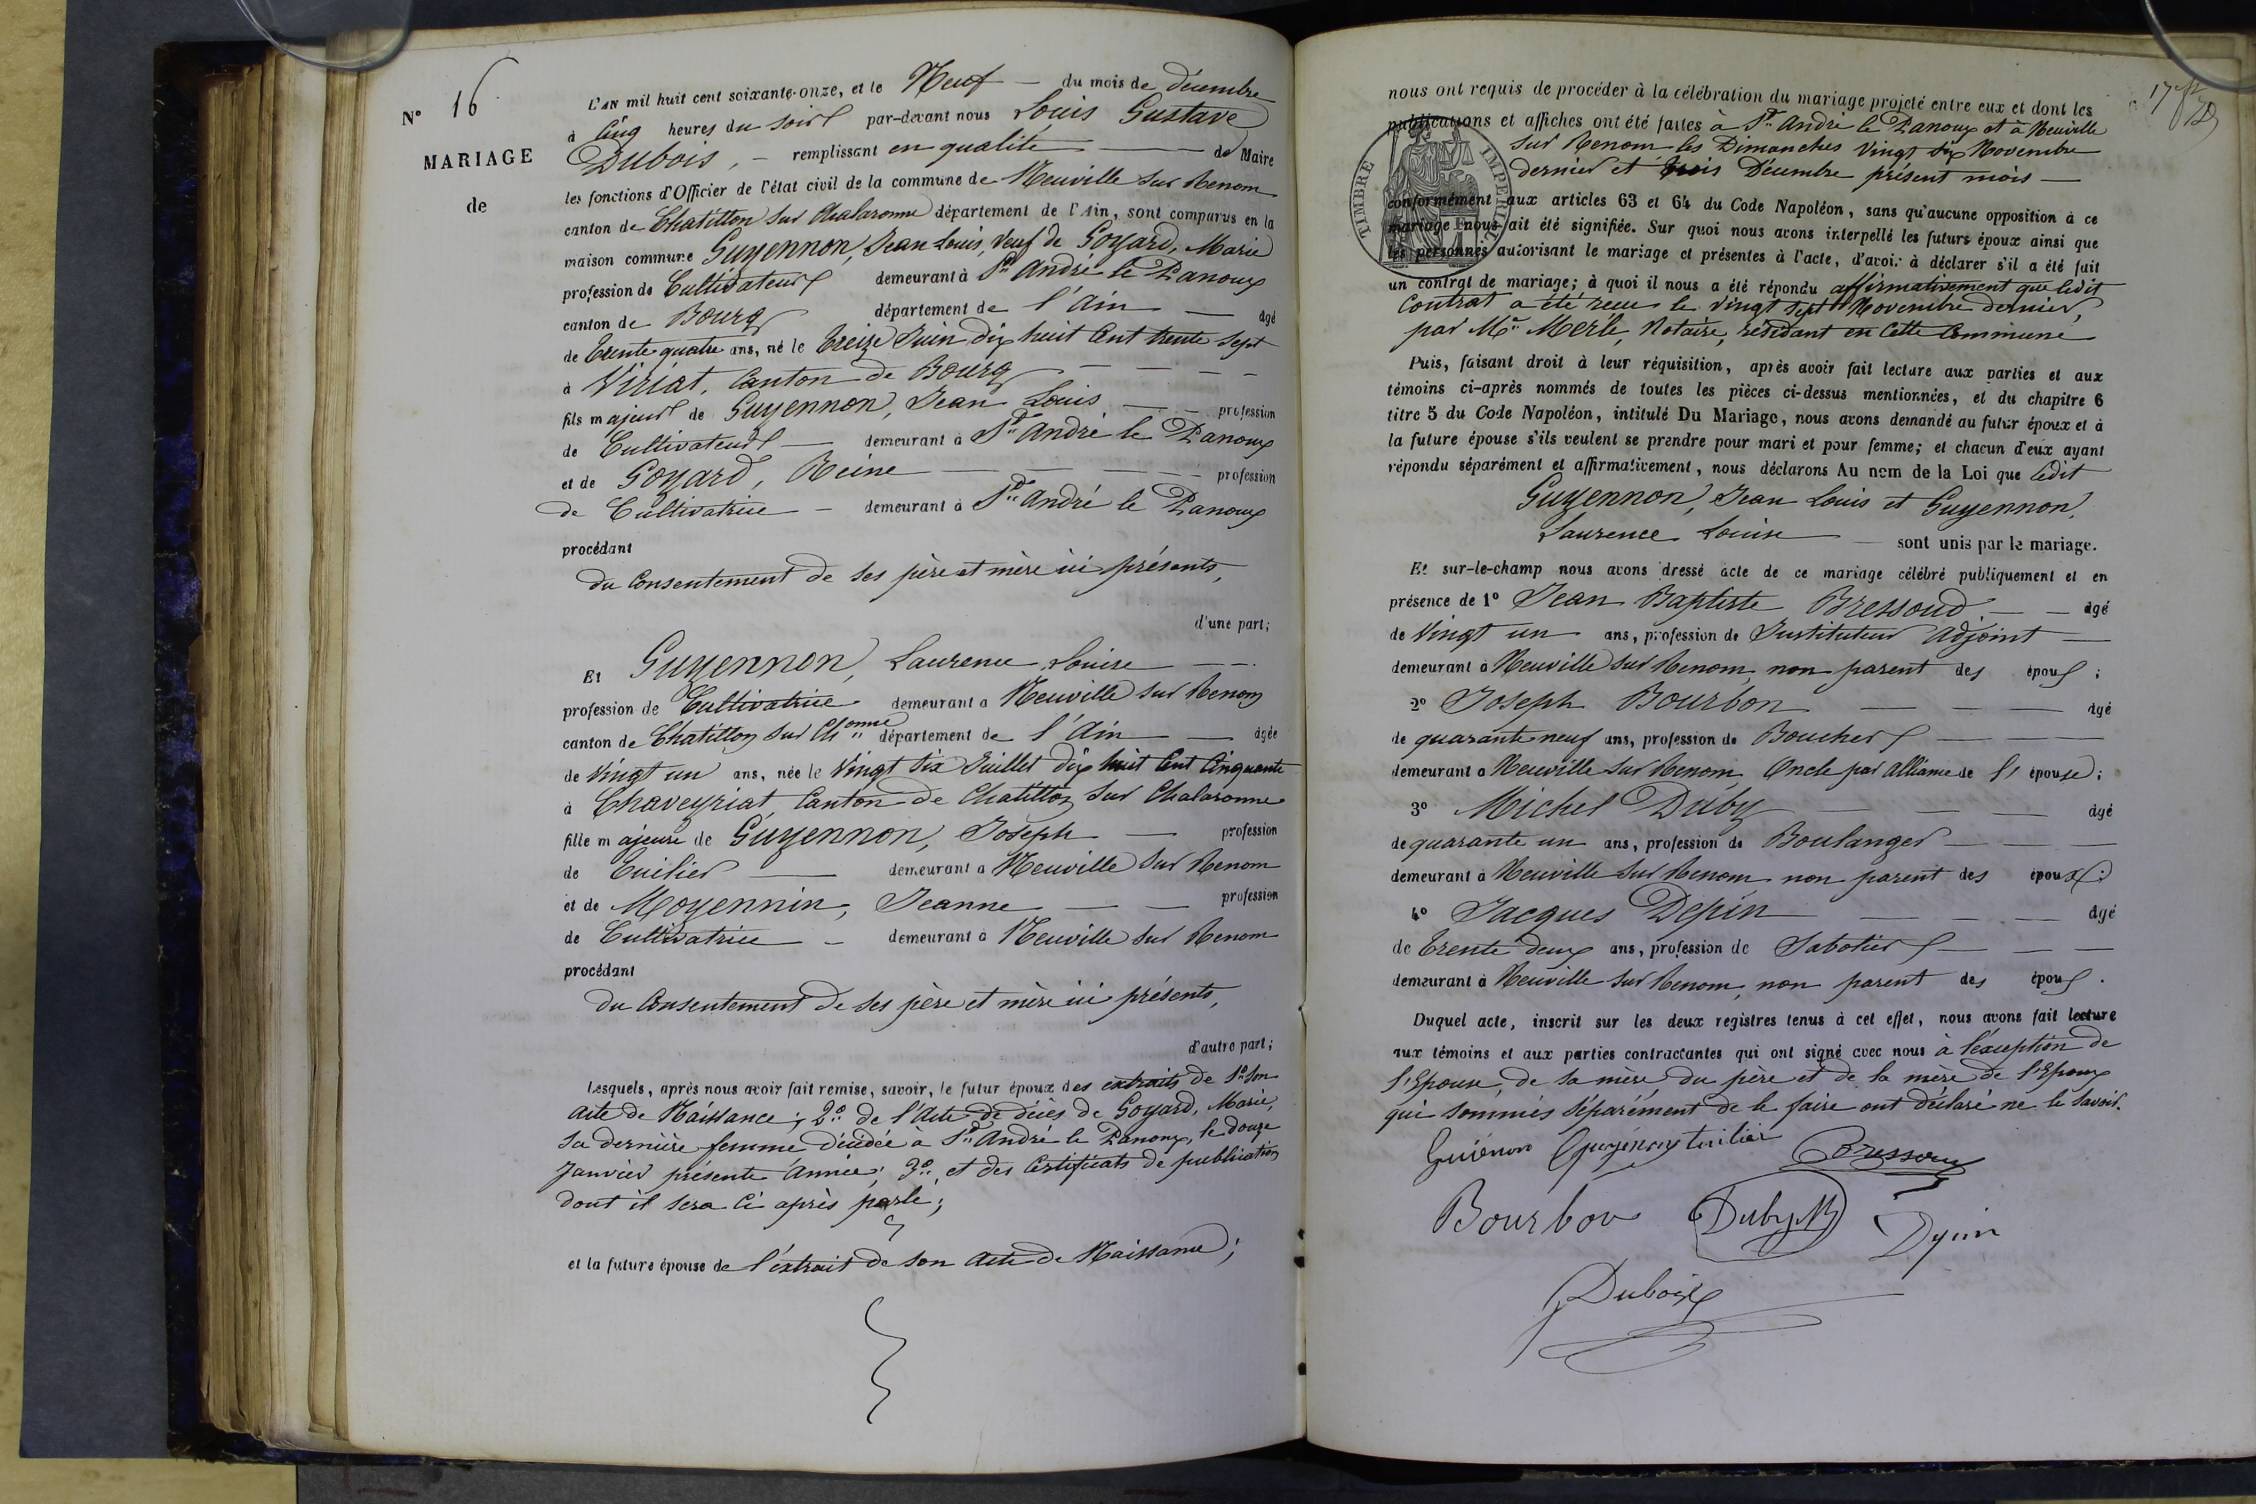 N° 16
MARIAGE
de
L'AN mil huit cent soixante-onze, et le Neuf — du mois de décembre
à Cinq heures du soir par-devant nous Louis Gustave
Dubois, — remplissant en qualité — de Maire
les fonctions d'Officier de l'état civil de la commune de Neuville sur Renom
canton de Chatillon sur Chalaronne département de l'Ain, sont comparus en la
maison commune Guyennon, Jean Louis, Veuf de Goyard, Marie
profession de Cultivateur demeurant à St André le Panoux
canton de Bourg département de l'Ain — âgé
de Trente quatre ans, né le Treize Juin dix huit Cent trente sept
à Viriat, Canton de Bourg — — — —
fils majeur de Guyennon, Jean Louis — — profession
de Cultivateur — demeurant à St André le Panoux
et de Goyard, Reine — — — — profession
de Cultivatrice — demeurant à St André le Panoux
procédant
du Consentement de ses père et mère ici présents,
d'une part;
Et Guyennon, Laurence Louise — —
profession de Cultivatrice demeurant à Neuville sur Renom
canton de Chatillon sur Chonne département de l'Ain — âgée
de Vingt un ans, née le Vingt Six Juillet dix huit Cent Cinquante
à Chaveyriat, Canton de Chatillon sur Chalaronne
fille majeure de Guyennon, Joseph — profession
de Tuilier — demeurant à Neuville sur Renom
et de Moyennin, Jeanne — — profession
de Cultivatrice — demeurant à Neuville sur Renom
procédant
du Consentement de ses père et mère ici présents,
d'autre part;
Lesquels, après nous avoir fait remise, savoir, le futur époux des extraits de 1° son
acte de Naissance; 2° de l'Acte de décès de Goyard, Marie,
sa dernière femme décédée à St André le Panoux, le douze
Janvier présente Année; 3° et des Certificats de publication
dont il sera Ci après parlé;
et la future épouse de l'extrait de son acte de Naissance;
nous ont requis de procéder à la célébration du mariage projeté entre eux et dont les
publications et affiches ont été faites à St André le Panoux et à Neuville
sur Renom les Dimanches Vingt six Novembre
dernier et trois Décembre présent mois —
TIMBRE IMPERIAL
conformément aux articles 63 et 64 du Code Napoléon, sans qu'aucune opposition à ce
mariage nous ait été signifiée. Sur quoi nous avons interpellé les futurs époux ainsi que
les personnes autorisant le mariage et présentes à l'acte, d'avoir à déclarer s'il a été fait
un contrat de mariage; à quoi il nous a été répondu affirmativement que ledit
Contrat a été reçu le Vingt sept Novembre dernier,
par Me Merle, Notaire, résidant en cette Commune
Puis, faisant droit à leur réquisition, après avoir fait lecture aux parties et aux
témoins ci-après nommés de toutes les pièces ci-dessus mentionnées, et du chapitre 6
titre 5 du Code Napoléon, intitulé Du Mariage, nous avons demandé au futur époux et à
la future épouse s'ils veulent se prendre pour mari et pour femme; et chacun d'eux ayant
répondu séparément et affirmativement, nous déclarons Au nom de la Loi que ledit
Guyennon, Jean Louis et Guyennon,
Laurence Louise — sont unis par le mariage.
Et sur-le-champ nous avons dressé acte de ce mariage célébré publiquement et en
présence de 1° Jean Baptiste Bressoud — — âgé
de Vingt un ans, profession de Instituteur adjoint —
demeurant à Neuville sur Renom, non parent des époux;
2° Joseph Bourbon — — — âgé
de quarante neuf ans, profession de Boucher —
demeurant à Neuville sur Renom, Oncle par Alliance de l'épouse;
3° Michel Duby — — — âgé
de quarante un ans, profession de Boulanger — — —
demeurant à Neuville sur Renom non parent des époux;
4° Jacques Depin — — — âgé
de Trente deux ans, profession de Sabotier — — —
demeurant à Neuville sur Renom, non parent des époux.
Duquel acte, inscrit sur les deux registres tenus à cet effet, nous avons fait lecture
aux témoins et aux parties contractantes qui ont signé avec nous à l'exception de
l'Epouse, de sa mère, du père et de la mère de l'Epoux
qui sommés séparément de le faire ont déclaré ne le savoir.
Guiénon Guyénon tuilier Bressoud
Bourbon Duby M Depin
Dubois